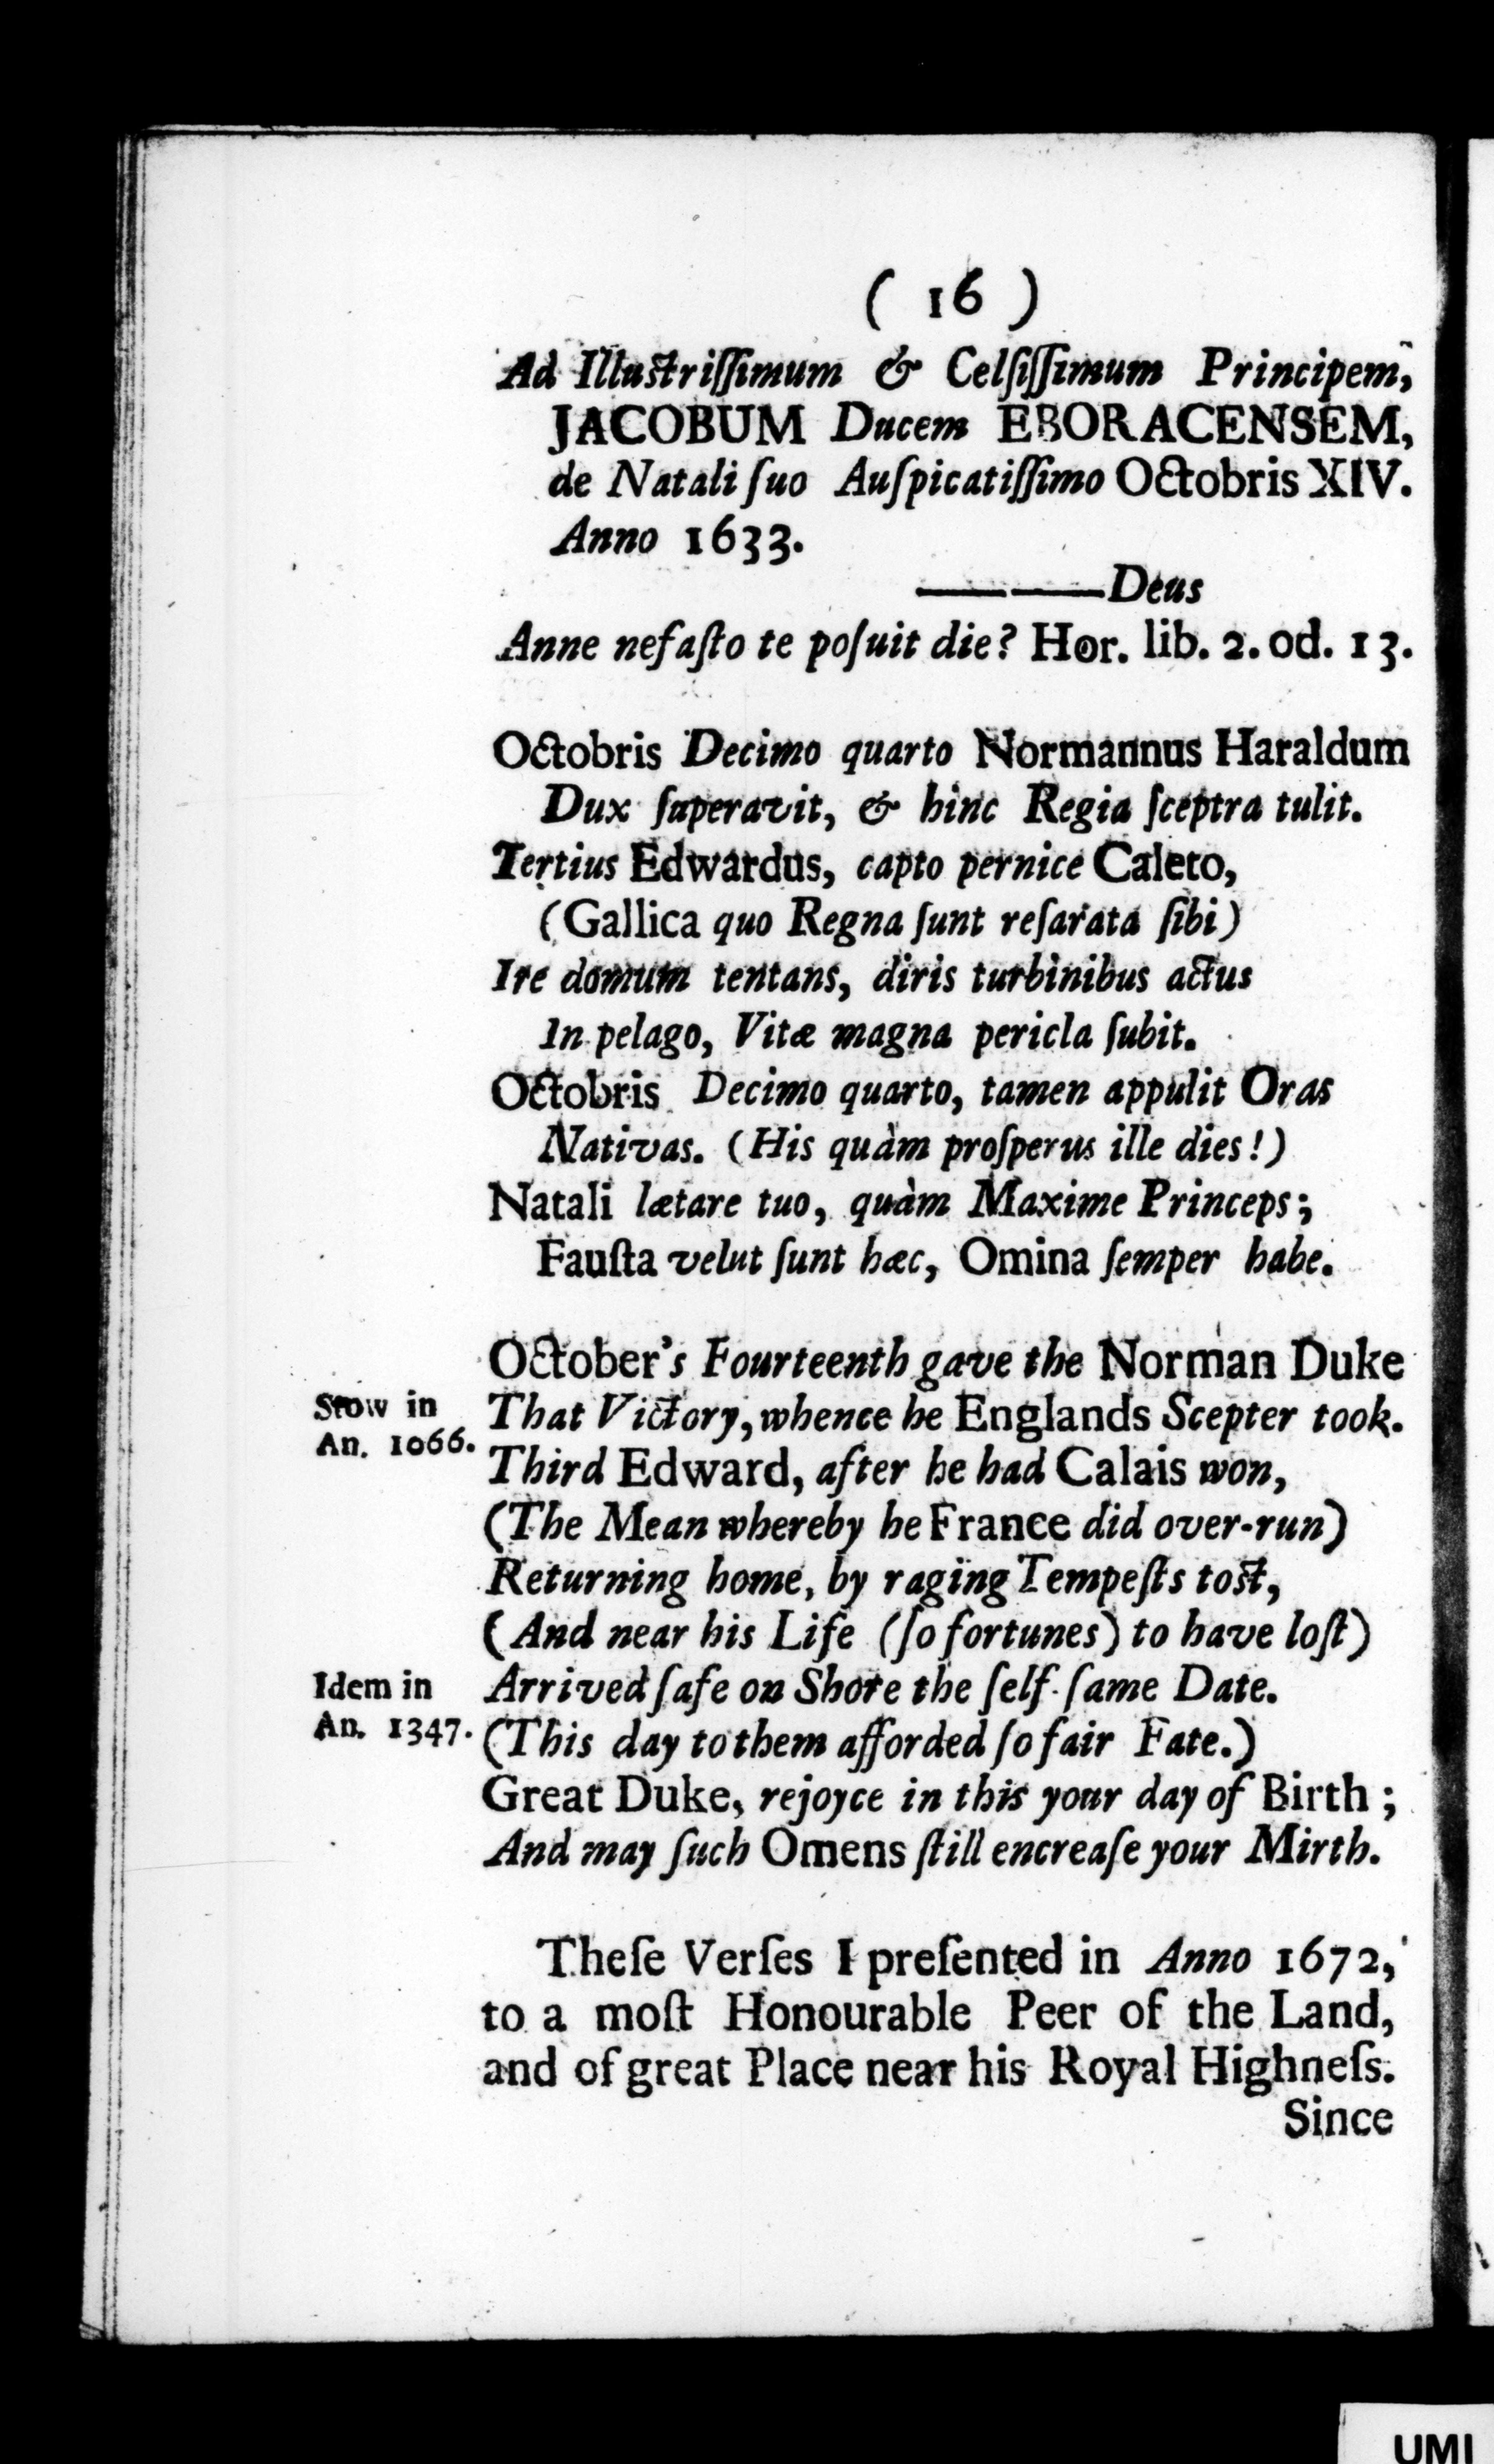 ( 16 )
Ad Illustriſſimum & Celſiſſimum Principem,
JACOBUM Ducem EBORACENSEM,
de Natali ſuo Auſpicatiſſimo Octobris XIV.
Anno 1633.
——Deus
Anne nefaſto te poſuit die? Hor. lib. 2. od. 13.
Octobris Decimo quarto Normannus Haraldum
Dux ſuperavit, & hinc Regia ſceptra tulit.
Tertius Edwardus, capto pernice Caleto,
(Gallica quo Regna ſunt reſarata ſibi)
Ire domum tentans, diris turbinibus actus
In pelago, Vitæ magna pericla ſubit.
Octobris Decimo quarto, tamen appulit Oras
Nativas. (His quàm proſperus ille dies!)
Natali lætare tuo, quàm Maxime Princeps;
Fauſta velut ſunt hæc, Omina ſemper habe.
October's Fourteenth gave the Norman Duke
Stow in
An. 1066.
That Victory, whence he Englands Scepter took.
Third Edward, after he had Calais won,
(The Mean whereby he France did over-run)
Returning home, by raging Tempeſts tost,
(And near his Life (ſo fortunes) to have loſt)
Idem in
An. 1347.
Arrived ſafe on Shore the ſelf-ſame Date.
(This day to them afforded ſo fair Fate.)
Great Duke, rejoyce in this your day of Birth;
And may ſuch Omens ſtill encreaſe your Mirth.
Theſe Verſes I preſented in Anno 1672,
to a moſt Honourable Peer of the Land,
and of great Place near his Royal Highneſs.
Since
UMI